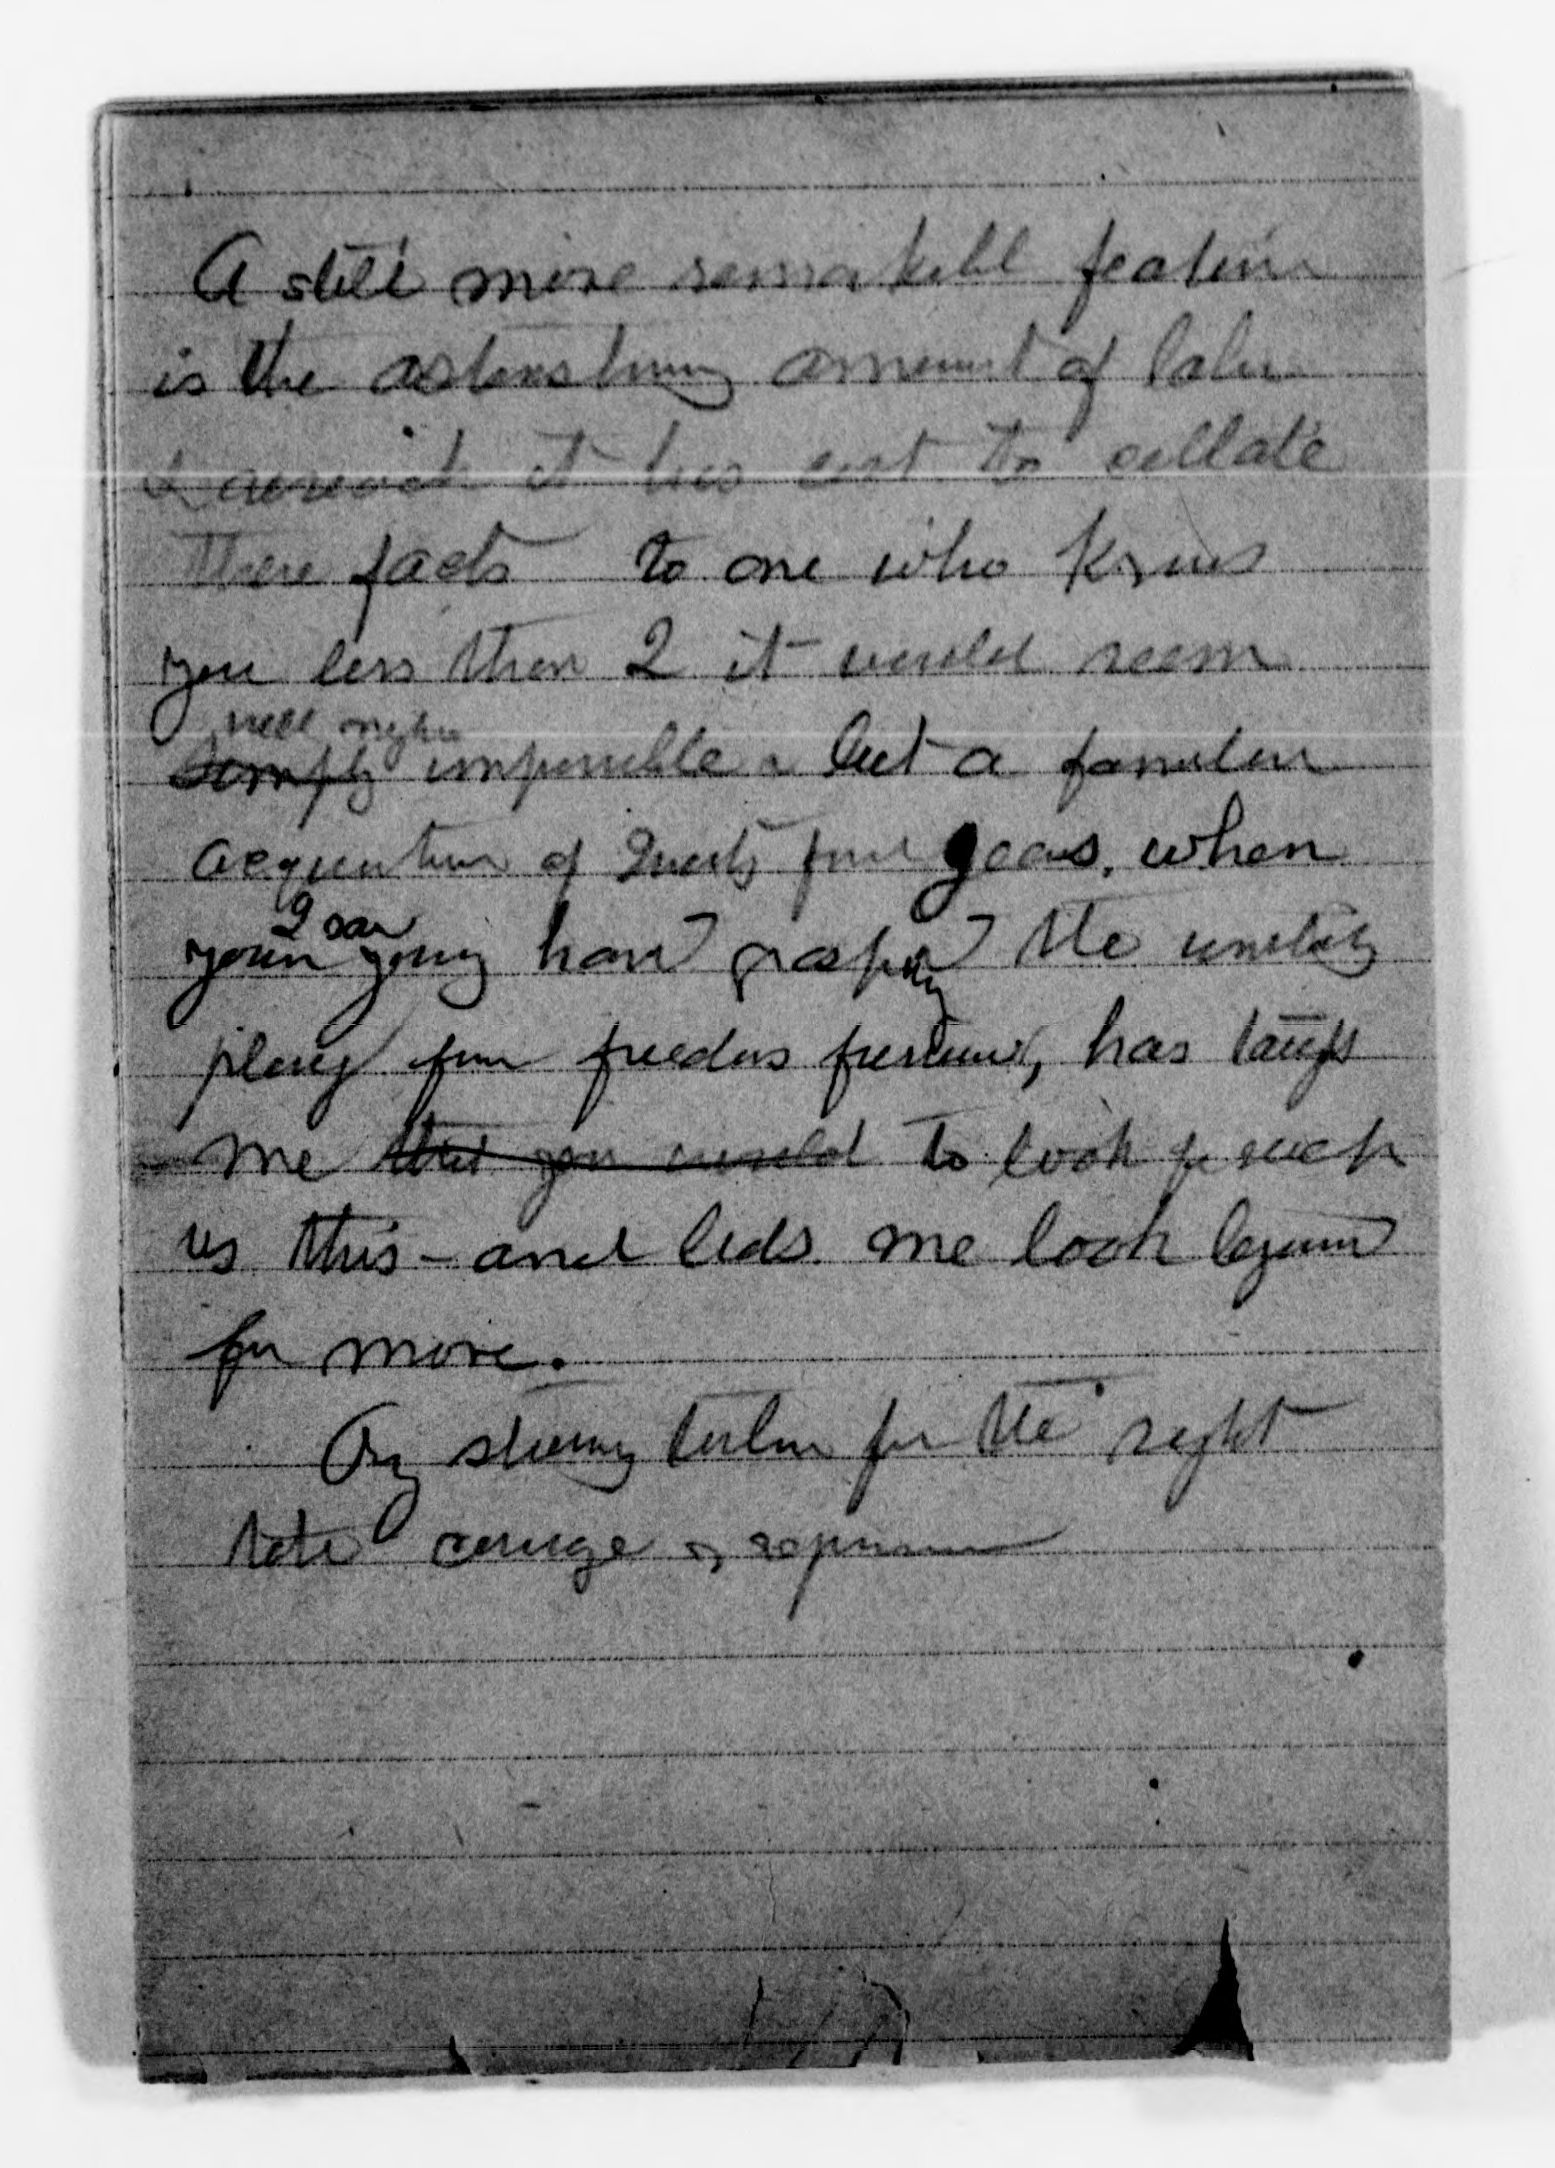 A still more remarkable feature
is the astonishing amount of labor
& research it has cost to collate
these facts to one who knows
you less than I it would seem
well nigh
simply impossible - but a familiar
of Twenty four years, when
I saw
your young hand grasping the unstately
for freedoms has taught
me that you would to look for such
as this - and bids me look beyond
for more.
for the right
courage &